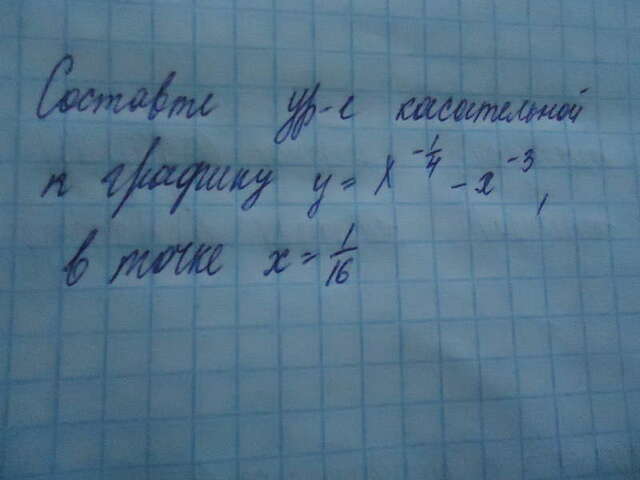 Составте ур-е касательной
к графику y = x^{-\frac{1}{4}} - x^{-3},
в точке x = \frac{1}{16}